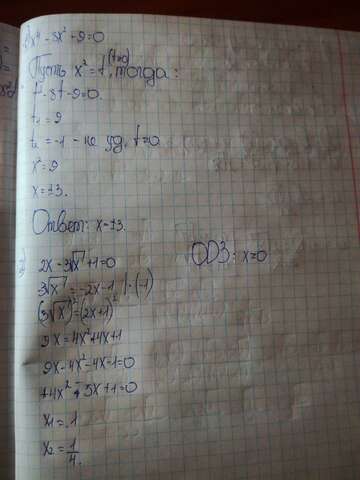 x⁴ - 8x² - 9 = 0
Пусть x² = t, (t≥0) тогда:
t² - 8t - 9 = 0.
t₁ = 9
t₂ = -1 - не уд. t≥0
x² = 9
x = ±3.
Ответ: x = ±3.
2x - 3√x + 1 = 0
ОДЗ: x≥0
3√x = -2x - 1 | · (-1)
(3√x)² = (2x+1)²
9x = 4x² + 4x + 1
9x - 4x² - 4x - 1 = 0
4x² - 5x + 1 = 0
x₁ = 1
x₂ = 1/4.